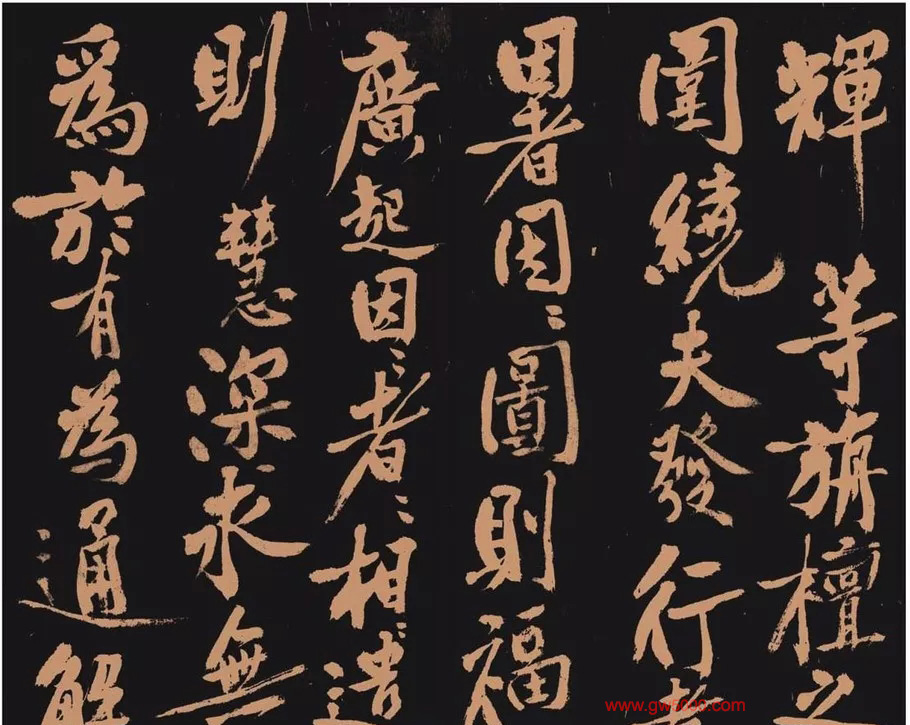 輝等旃檀之
圍繞夫發行者
因者因〻圖則福
廣起因〻者〻相遣
則慧深求無
爲於有為通解
www.gw5000.com